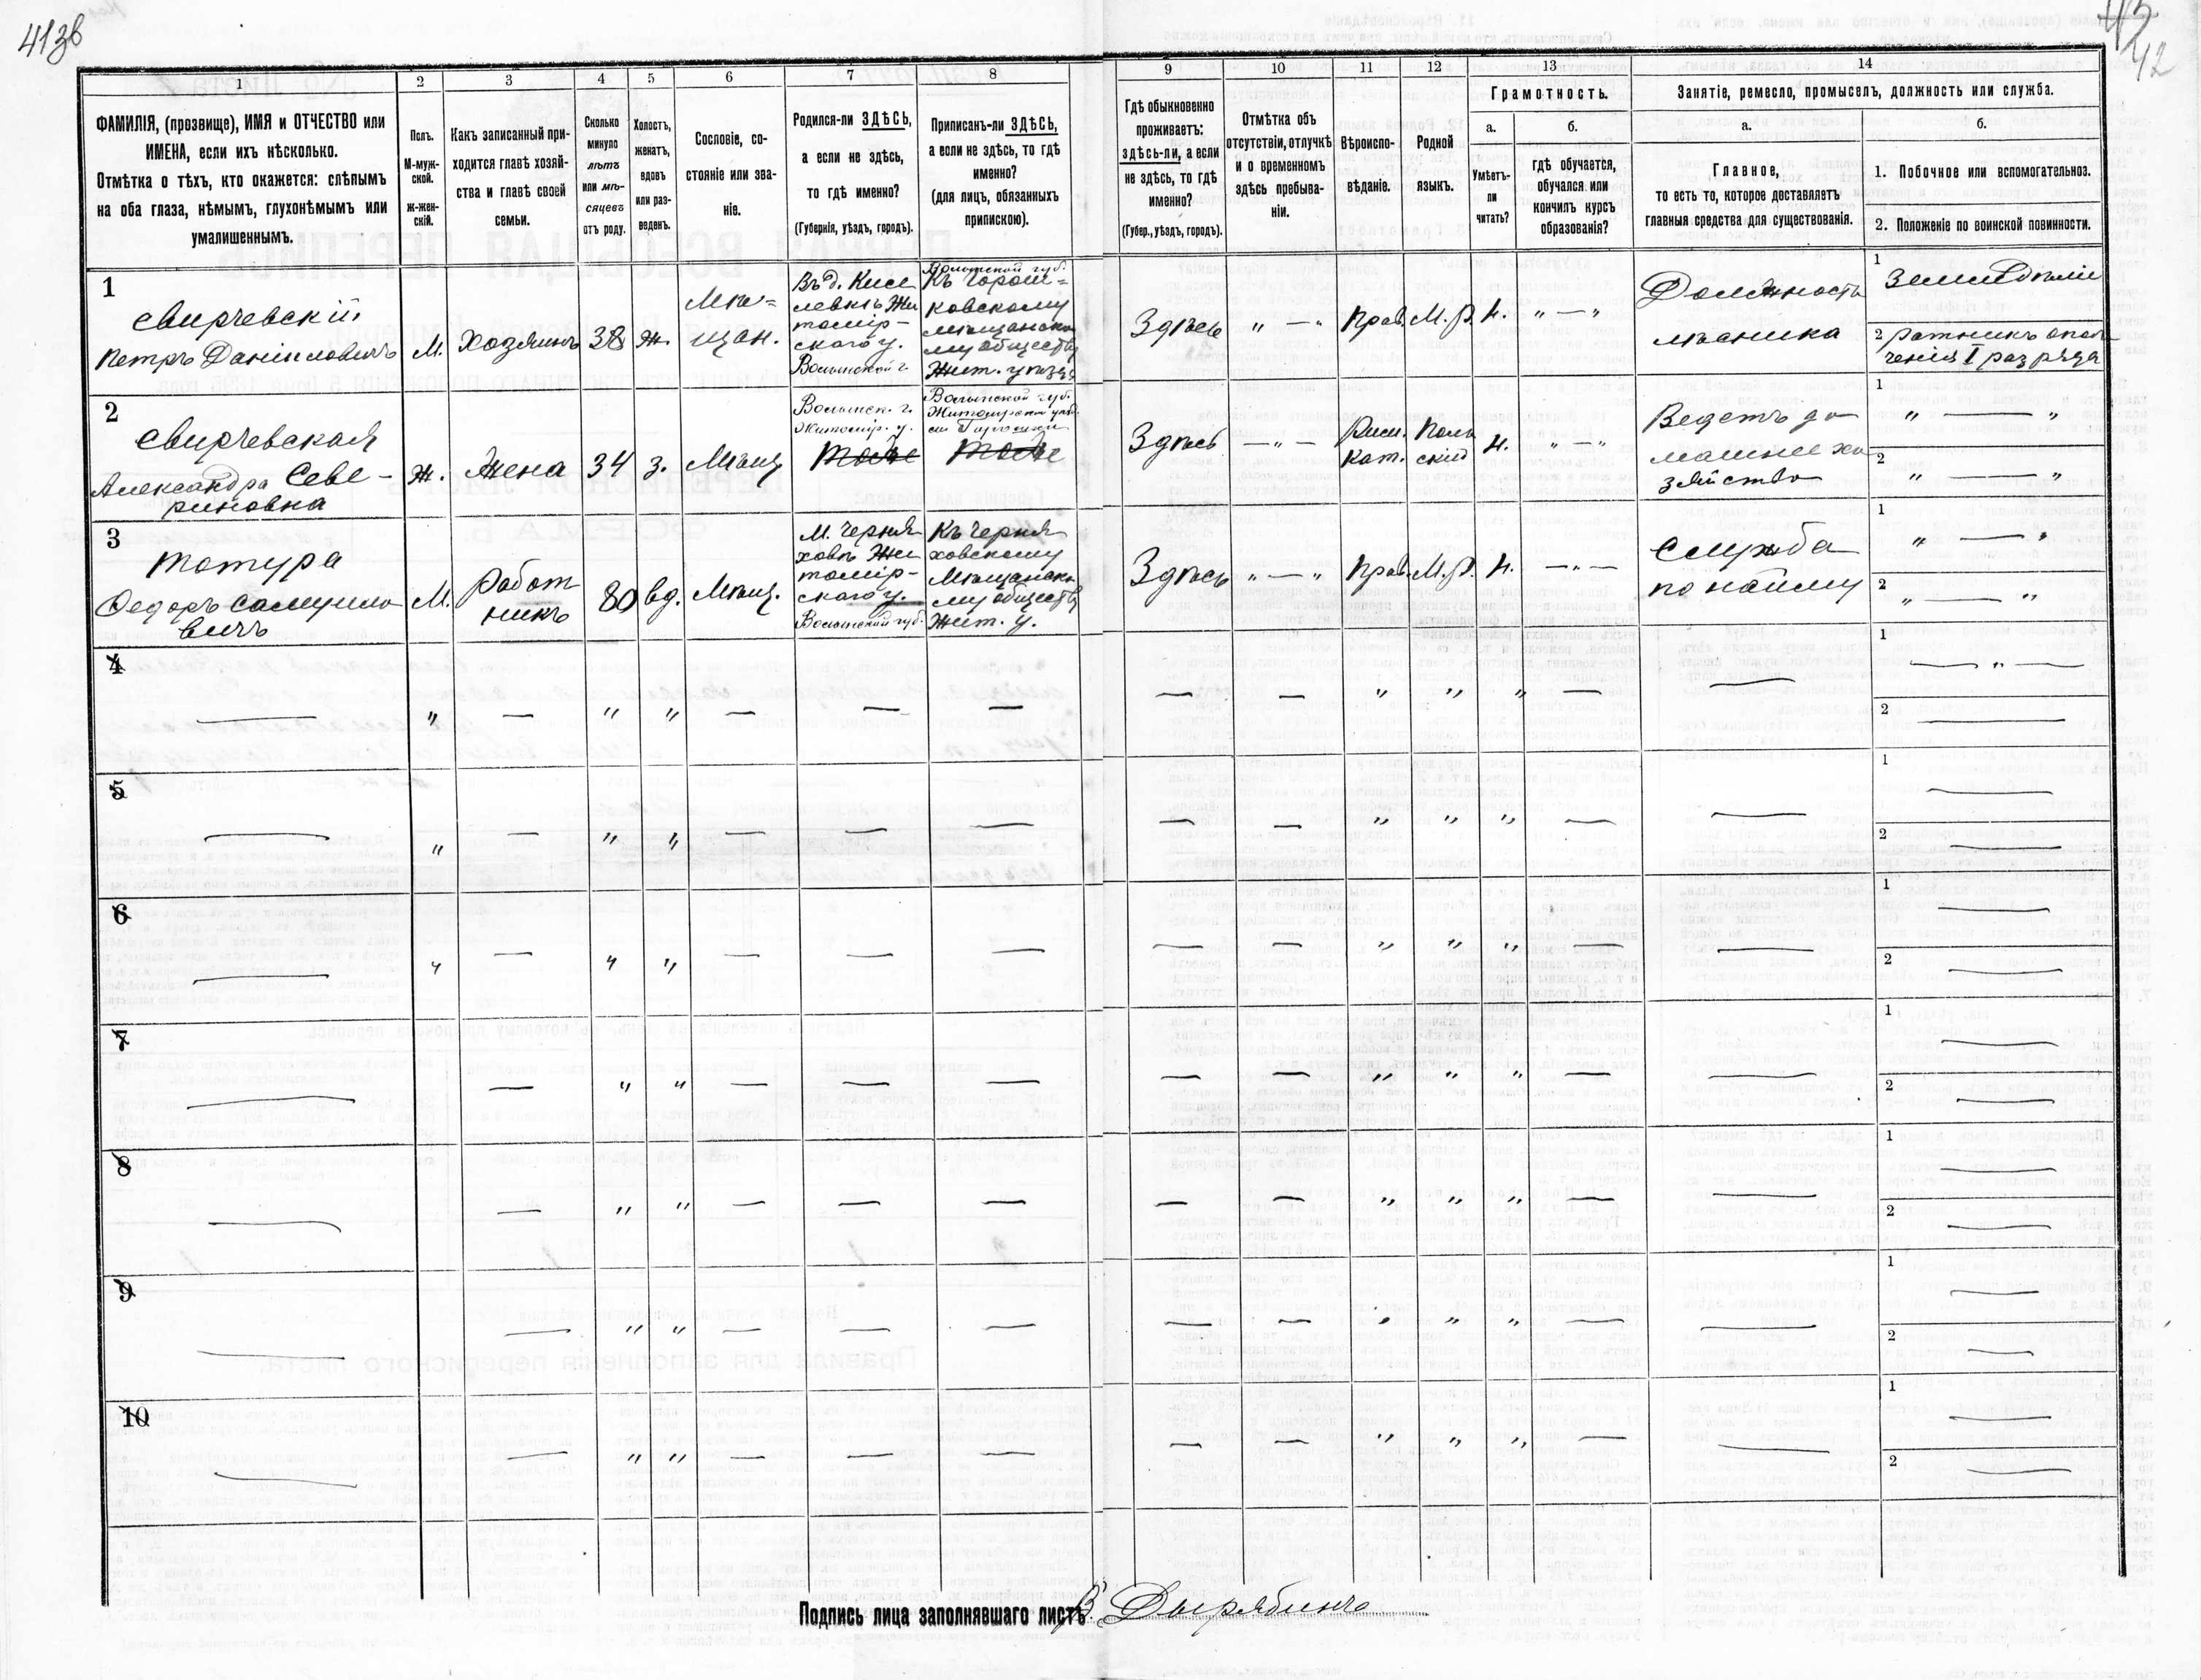 413б
42
1
2
3
4
5
6
7
8
9
10
11
12
13
14
ФАМИЛІЯ, (прозвище), ИМЯ и ОТЧЕСТВО или
ИМЕНА, если ихъ нѣсколько.
Отмѣтка о тѣхъ, кто окажется: слѣпымъ
на оба глаза, нѣмымъ, глухонѣмымъ или
умалишеннымъ.
Полъ.
М-муж-
ской.
ж-жен-
скій.
Какъ записанный при-
ходится главѣ хозяй-
ства и главѣ своей
семьи.
Сколько
минуло
лѣтъ
или мѣ-
сяцевъ
отъ роду.
Холостъ,
женатъ,
вдовъ
или раз-
веденъ.
Сословіе, со-
стояніе или зва-
ніе.
Родился-ли ЗДѢСЬ,
а если не здѣсь,
то гдѣ именно?
(Губернія, уѣздъ, городъ).
Приписанъ-ли ЗДѢСЬ,
а если не здѣсь, то гдѣ
именно?
(для лицъ, обязанныхъ
припискою).
Гдѣ обыкновенно
проживаетъ:
здѣсь-ли, а если
не здѣсь, то гдѣ
именно?
(Губер., уѣздъ, городъ).
Отмѣтка объ
отсутствіи, отлучкѣ
и о временномъ
здѣсь пребыва-
ніи.
Вѣроиспо-
вѣданіе.
Родной
языкъ.
Грамотность.
а.
Умѣетъ-
ли
читать?
б.
гдѣ обучается,
обучался или
кончилъ курсъ
образованія?
Занятіе, ремесло, промыселъ, должность или служба.
а.
Главное,
то есть то, которое доставляетъ
главныя средства для существованія.
б.
1. Побочное или вспомогательноз.
2. Положеніе по воинской повинности.
1
Свирчевскій
Петръ Даніиловичъ
М.
Хозяинъ
38
ж.
Мѣ=
щан.
Въ д. Кисе
левкѣ Жи
томір-
скаго у.
Волынской г.
Волынской губ.
Къ Горош=
ковскому
мѣщанско
му обществу
Жит. уѣзда
Здѣсь
" — "
Прав.
М. р.
Н.
" — "
Должность
1
Земледѣліе
2 ратникъ опол
ченія I разряда
2
Свирчевская
Александра Севе-
риновна
ж.
Жена
34
з.
Мѣщ
Волынск. г.
Житомір. у.
Тоже
Волынской губ.
Тоже
Здѣсь
— " —
Рим.
Кат.
Поль
скій
Н.
" — "
Ведетъ до
машнее хо
зяйство
1
" — "
2
" — "
3
Тотура
Федоръ Самуило
вичъ
М.
Работ
никъ
80
вд.
Мѣщ.
М. Черня
ховѣ Жи
томір-
скаго у.
Волынской губ.
Къ Черня
ховскому
Мѣщанско
му обществу
Жит. у.
Здѣсь
" — "
Прав.
М. р.
Н.
— " —
Служба
по найму
1
" — "
2
" — "
4
1
2
5
1
2
6
1
2
7
1
2
8
1
2
9
1
2
10
1
2
Подпись лица заполнявшаго листъ